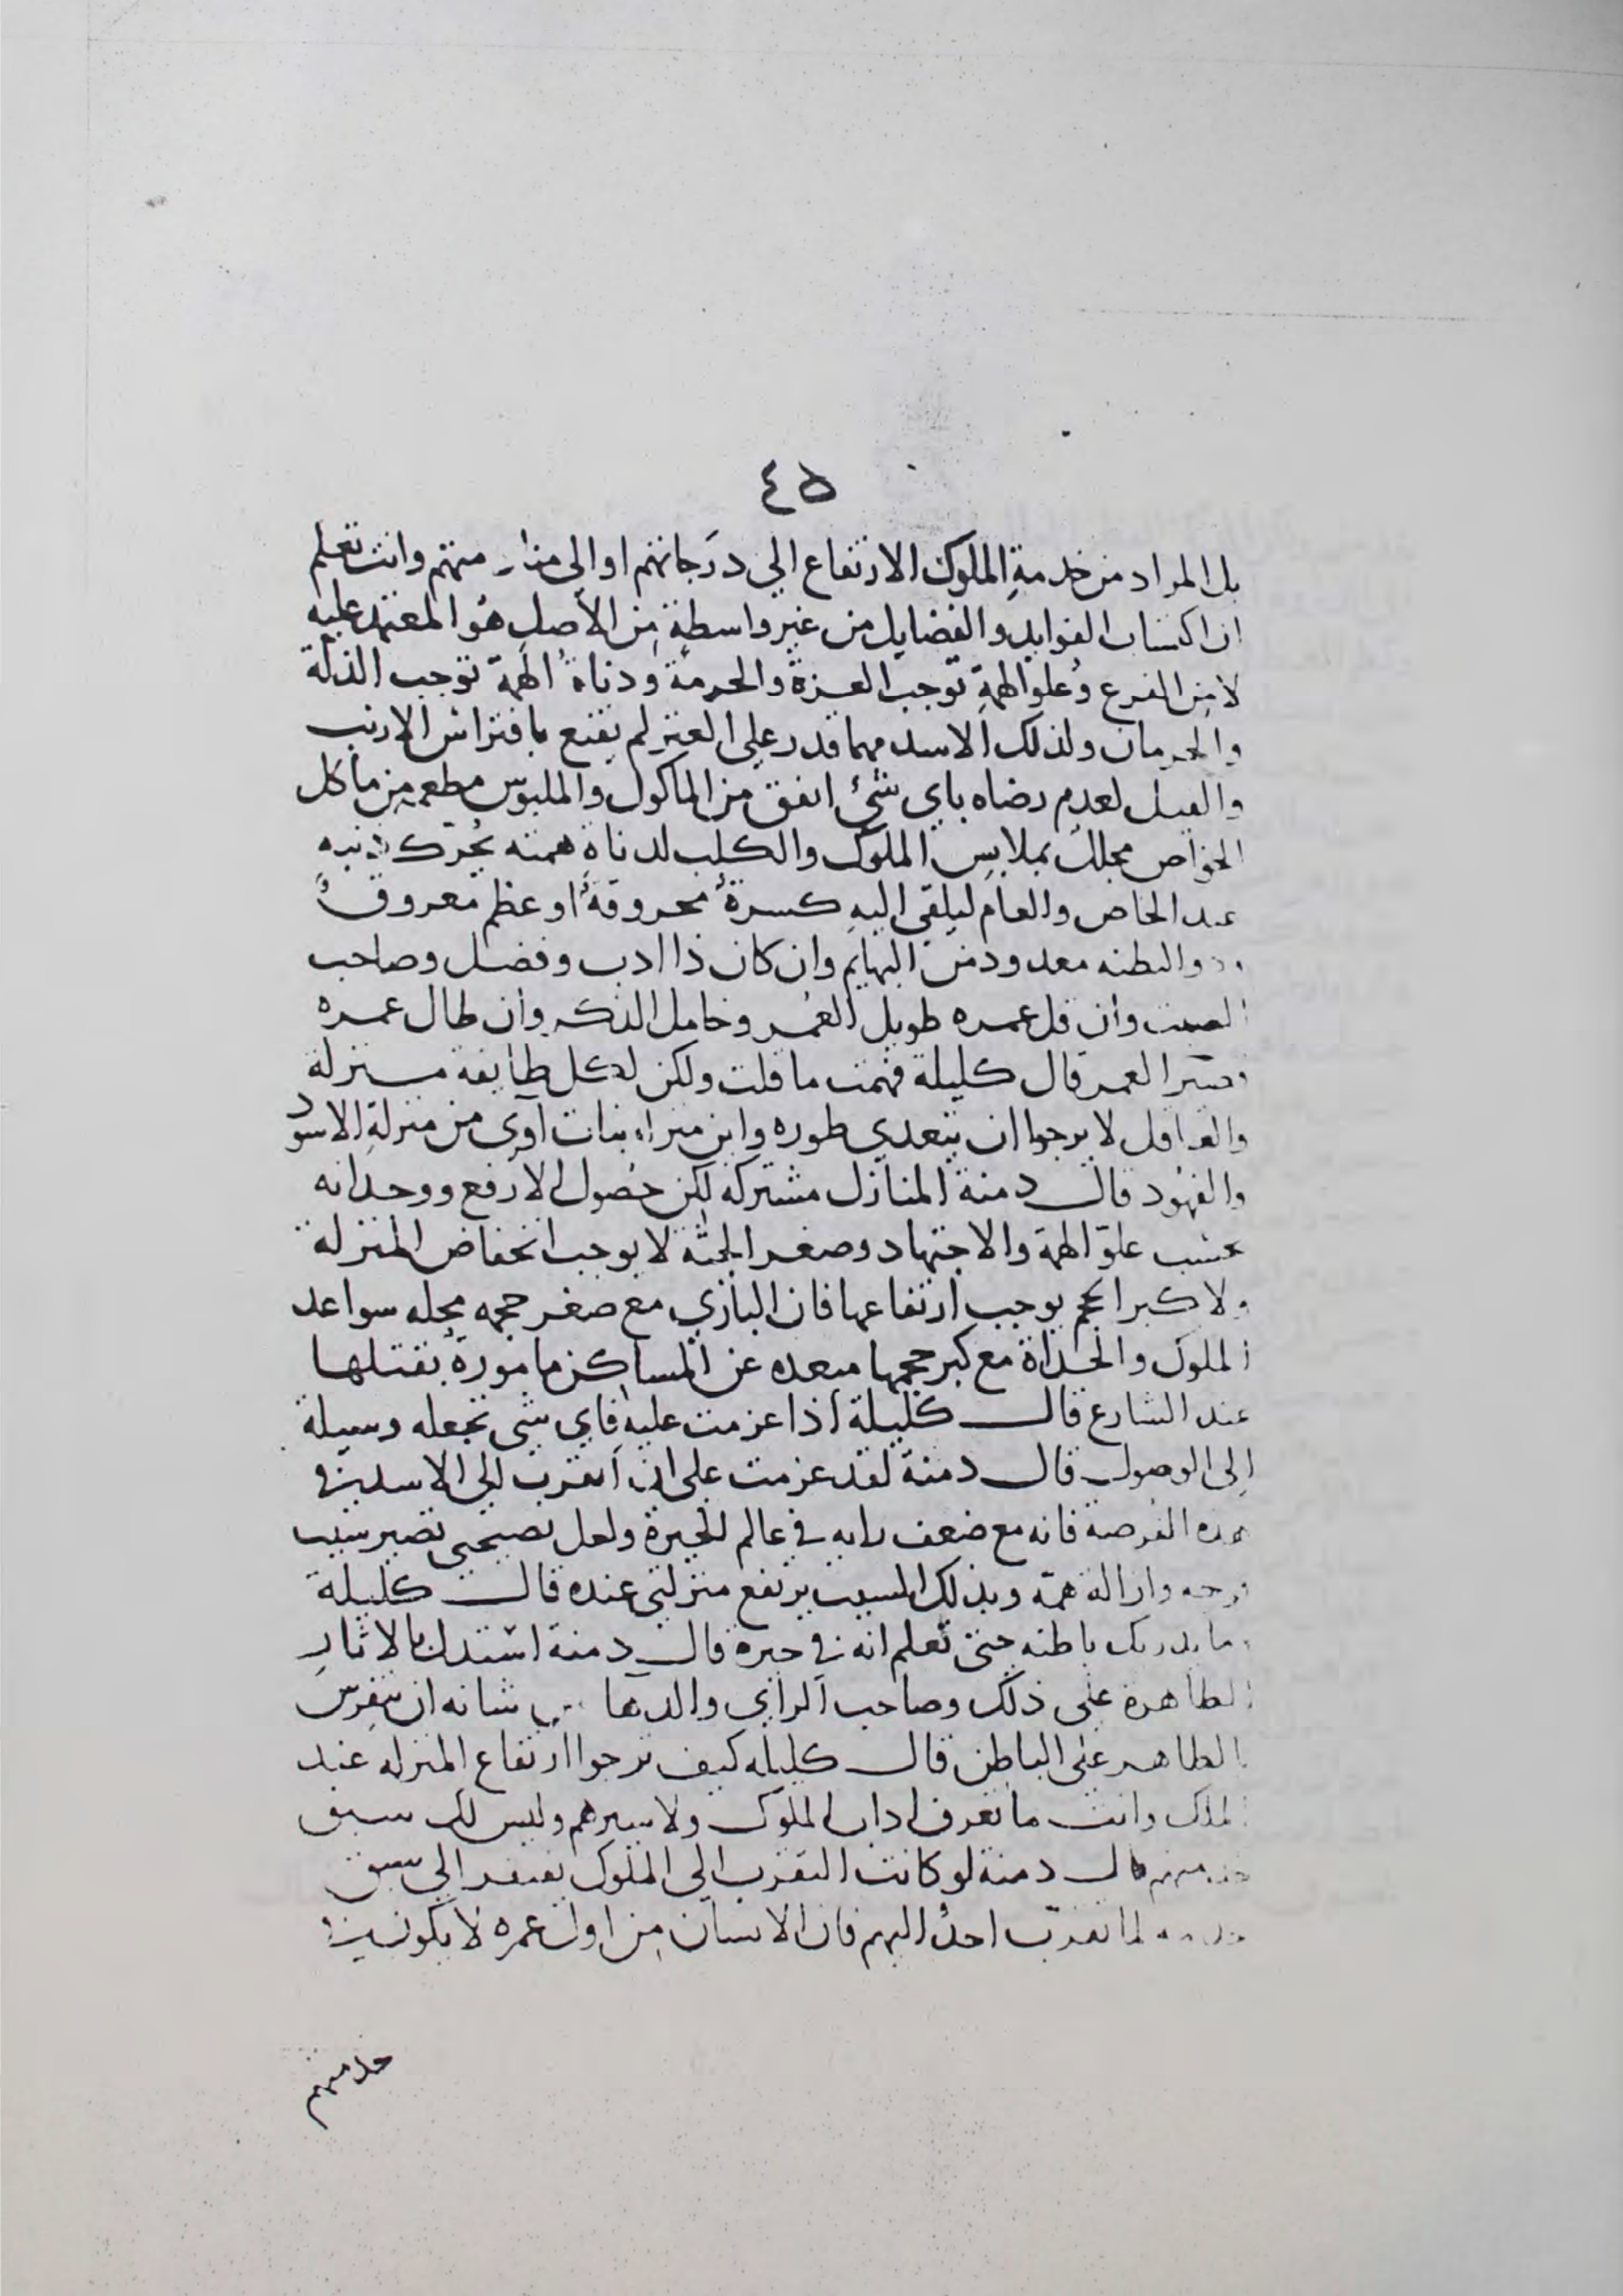 ٤٥
بل المراد من خدمةِ الملوك الارتفاع الي دَرَجاتهم او الى وانت تعلم
ان اكتساب الفوايد والفضايل من غير واسطةٍ مِن الأصلِ هُو المعتمد عليه
لا مِن الفرع وعُلو الهمةِ توجب العزة والحرمة ودناةُ الهمة توجب الذلة
والحرمان ولذلك الاسد مهما قدر علي العنز لم يقنع بافتراش الارنب
والفيل لعدم رضاه باي شئ اتفق من الماكول والملبوس مطعم مِن ماكل
الخواص مجللٌ بملابسِ الملوك والكلب لدناةِ همته يُحرّك ذنبه
عند الخاص والعام ليلقى اليهِ كسرةٌ محروقةٌ او عظم معروقٌ
والبطنه معدود من البهايم وان كان ذا ادب وفضل وصاحب
الصيت وان قل عمره طويل العُمر وخامل الذكر وان طال عمره
قصير العمر قال كليلة فهمت ما قلت ولكن لكل طايفة منزلة
والعاقل لا يرجوا ان يتعدي طوره واين منزله بنات آوى من منزلةِ الاسود
والفهُود قال دمنة المنازل مشتركة لكن حُصول الارفع ووحدانه
بحسب علوّ الهمة والاجتهاد وصغر الجثة لا يوجب انخفاض المنزلة
ولا كبر الحجم يوجب ارتفاعها فان البازي مع صغر حجمه محله سواعد
الملوك والحداة مع كبر حجمها مبعده عن المساكن مامورةٌ بقتلها
عند الشارع قال كليلة اذا عزمت عليه فاي شي تجعله وسيلة
اِلى الوصول قال دمنة لقد عزمت على ان اتقرب الى الاسد في
هذه الفرصة فانه مع ضعف رايه في عالم الحيرة ولعل نصيحتى تصير سبب
فرحه وازالة همّه وبذلك السبب يرتفع منزلتى عنده قال كليلة
وما يدريك باطنه حتى تعلم انه في حيرة قال دمنة استدل بالاثارِ
الظاهرة على ذلك وصاحب الراي والدها من شانه ان يتفرس
بالظاهر على الباطن قال كليله كيف ترجوا ارتفاع المنزله عند
الملك وانت ما تعرف اداب الملوك ولا سيرهم وليس لك سبق
خدمتهم قال دمنة لو كانت التقرب الى الملوك يفتقر الي سبق
خدمه لما تقرّب احدٌ اليهم فان الانسان مِن اول عمره لا يكون في
خدمتهم